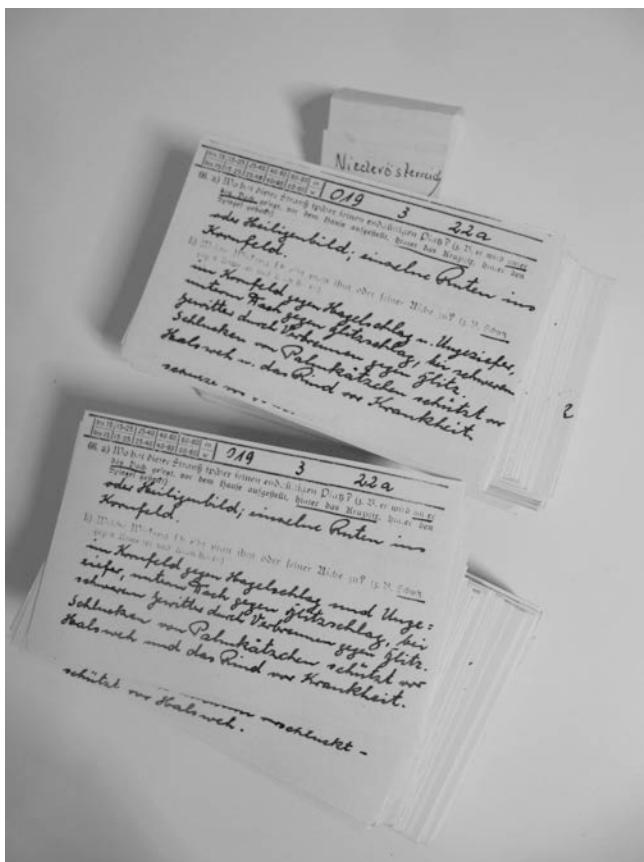 Niederösterreich
bis 15 15-25 25-40 40-60 60-80 m
bis 15 15-25 25-40 40-60 60-80 w
019 3 22a
66. a) Wo hat dieser Strauß später seinen endgültigen Platz? (z. B. er wird unter
das Dach gelegt, vor dem Hause aufgestellt, hinter das Kruzifix, hinter den
Spiegel gesteckt)
oder Heiligenbild; einzelne Ruten ins
Kornfeld.
b) Welche Wirkung schreibt man ihm oder seiner Asche zu? (z. B. Schutz
gegen
im Kornfeld gegen Hagelschlag u. Ungeziefer,
unterm Dach gegen Blitzschlag, bei schweren
Gewitter durch Verbrennen gegen Blitz.
Schlucken von Palmkätzelen schützt vor
Halsweh u. das Rind vor Krankheit.
2
bis 15 15-25 25-40 40-60 60-80 m
bis 15 15-25 25-40 40-60 60-80 w
019 3 22a
66. a) Wo hat dieser Strauß später seinen endgültigen Platz? (z. B. er wird unter
das Dach gelegt, vor dem Hause aufgestellt, hinter das Kruzifix, hinter den
Spiegel gesteckt)
oder Heiligenbild; einzelne Ruten ins
Kornfeld.
b) Welche Wirkung schreibt man ihm oder seiner Asche zu? (z. B. Schutz
gegen
im Kornfeld gegen Hagelschlag und Unge=
ziefer, unterm Dach gegen Blitzschlag, bei
schwerem Gewitter durch Verbrennen gegen Blitz.
Schlucken von Palmkätzchen schützt vor
Halsweh und das Rind vor Krankheit.
schluckt -
schützt vor Halsweh.